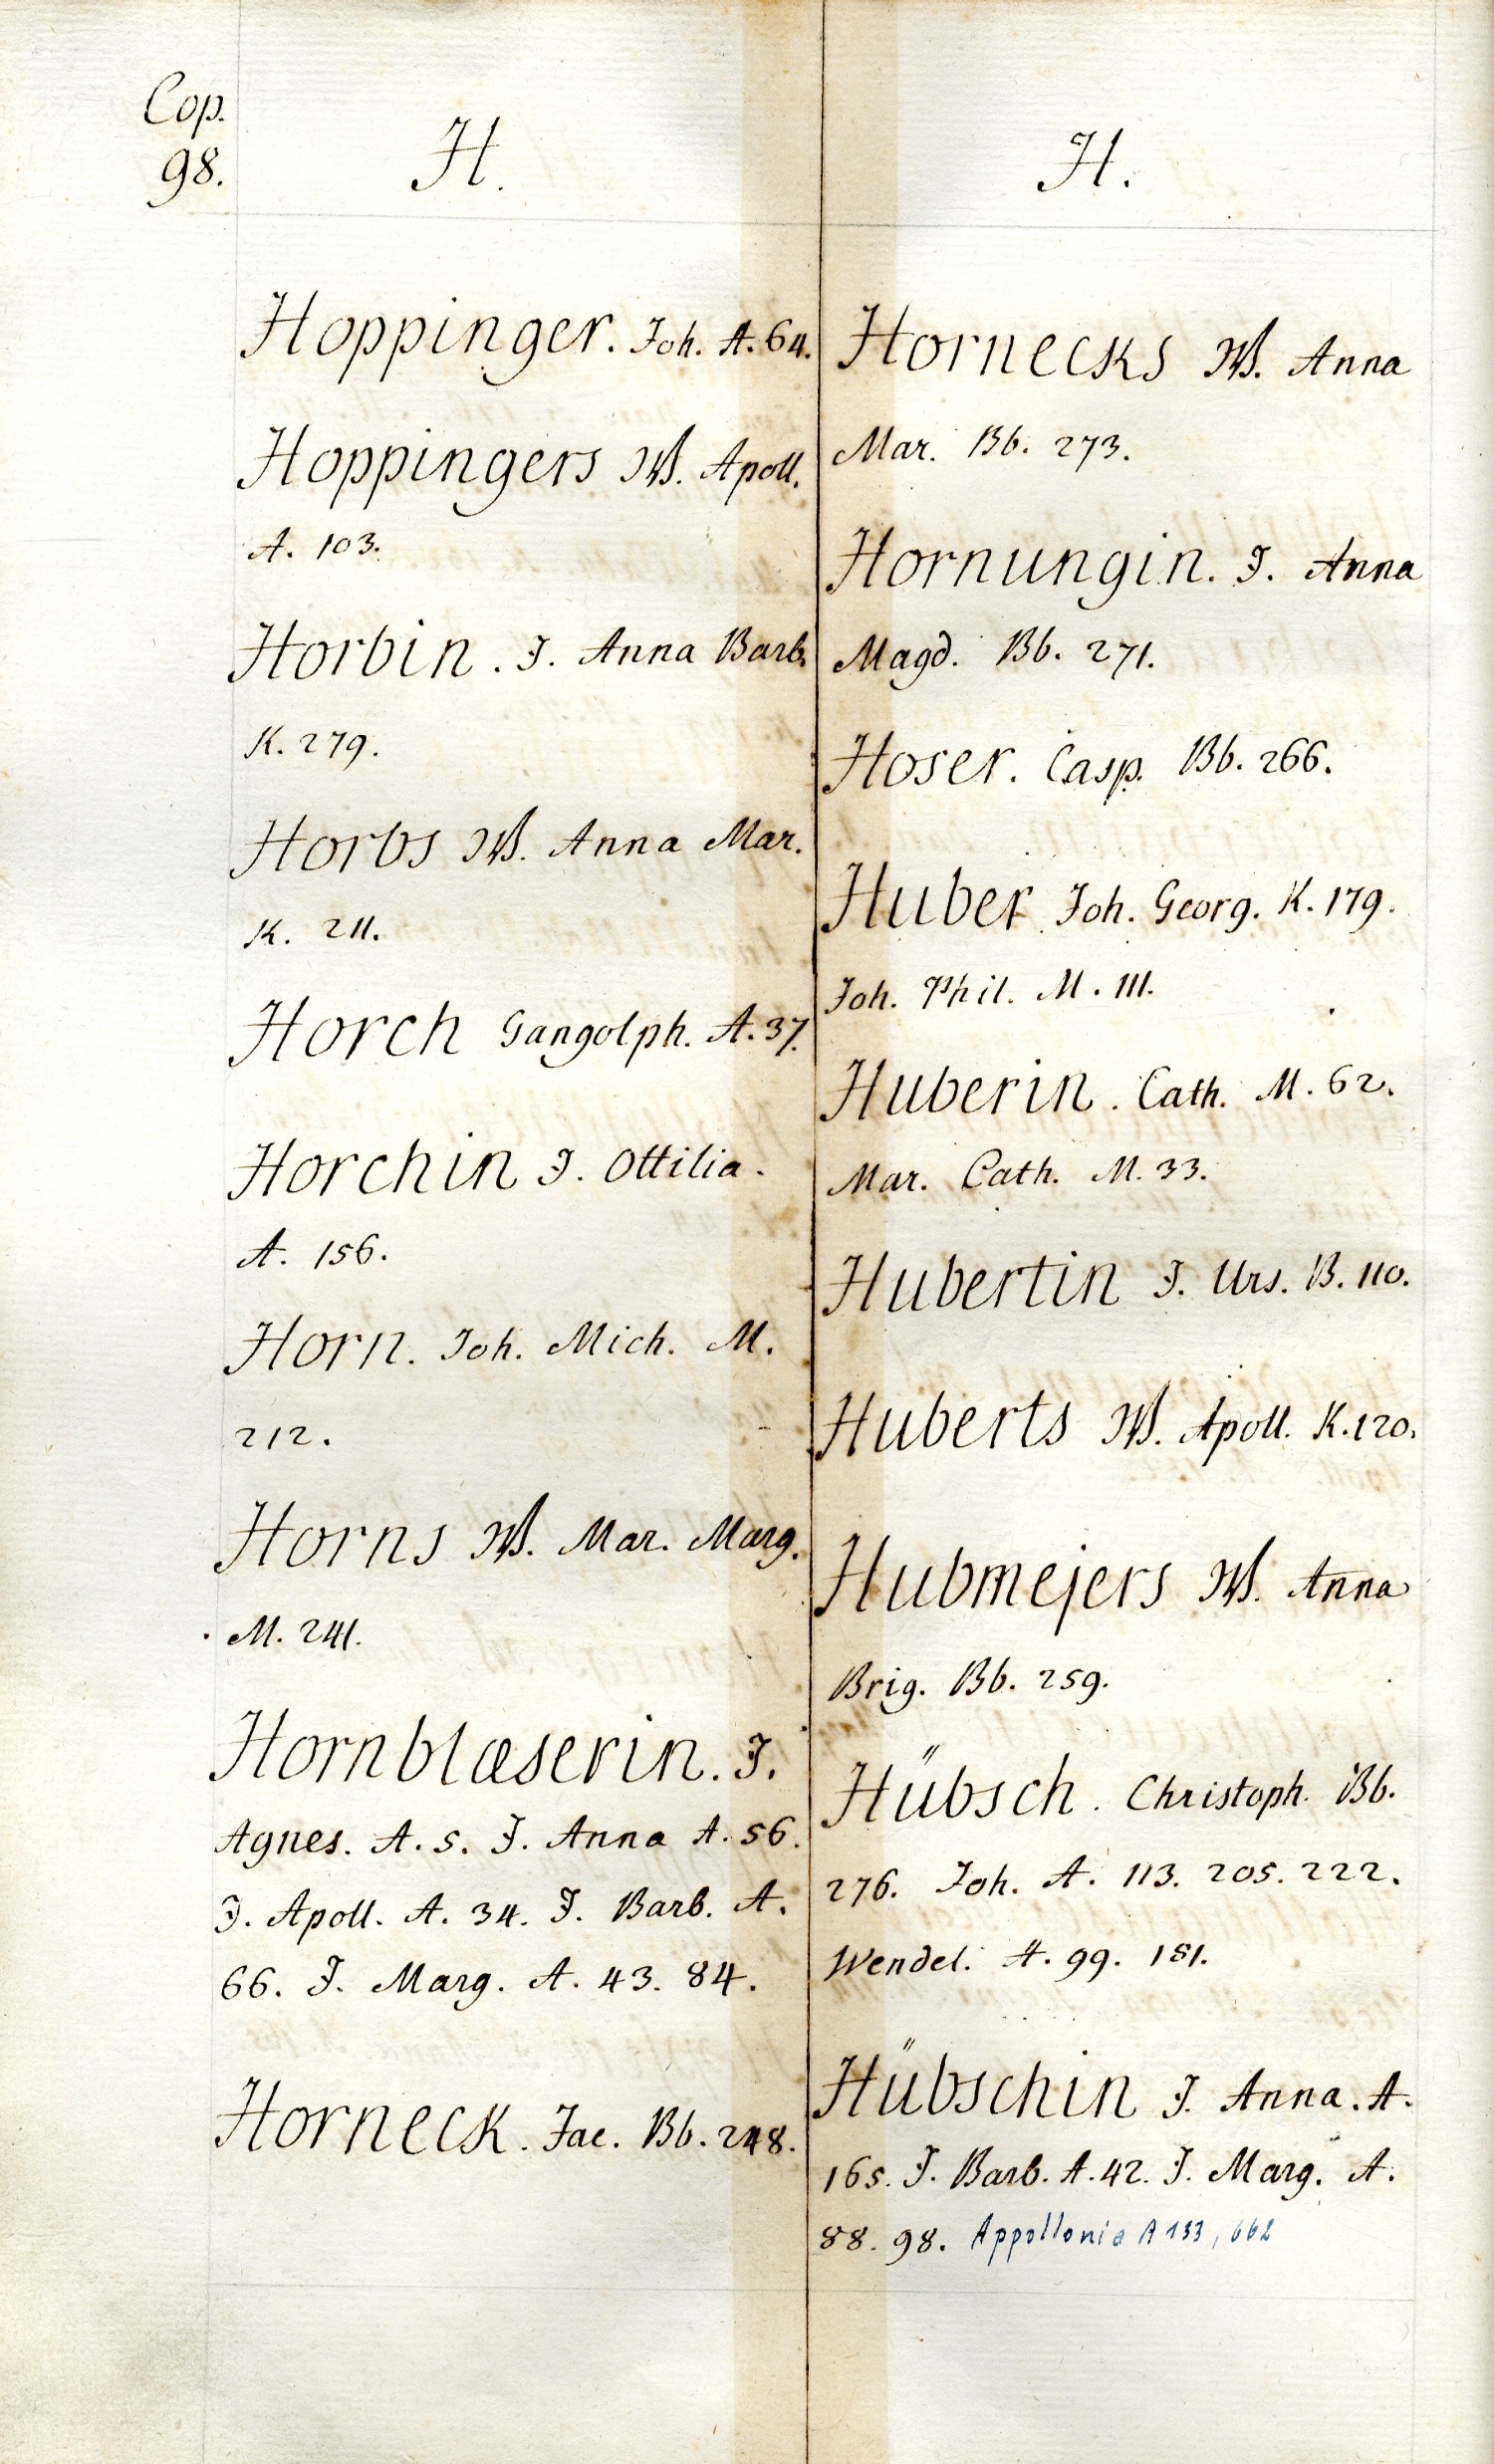 Cop.
98.
H.
Hoppinger. Joh. A. 64.
Hoppingers W. Apoll.
A. 103.
Horbin. J. Anna Barb.
K. 279.
Horbs W. Anna Mar.
K. 211.
Horch Gangolph. A. 37.
Horchin J. Ottilia.
A. 156.
Horn. Joh. Mich. M.
212.
Horns W. Mar. Marg.
M. 241.
Hornblæserin. J.
Agnes. A. 5. J. Anna A. 56.
J. Apoll. A. 34. J. Barb. A.
66. J. Marg. A. 43. 84.
Horneck. Jac. Bb. 248.
H.
Hornecks W. Anna
Mar. Bb. 273.
Hornungin. J. Anna
Magd. Bb. 271.
Hoser. Casp. Bb. 266.
Huber Joh. Georg. K. 179.
Joh. Phil. M. 111.
Huberin. Cath. M. 62.
Mar. Cath. M. 33.
Hubertin J. Urs. B. 110.
Huberts W. Apoll. K. 120.
Hubmejers W. Anna
Brig. Bb. 259.
Hübsch. Christoph. Bb.
276. Joh. A. 113. 205. 222.
Wendel. A. 99. 181.
Hübschin J. Anna. A.
165. J. Barb. A. 42. J. Marg. A.
88. 98. Appollonia A 133,